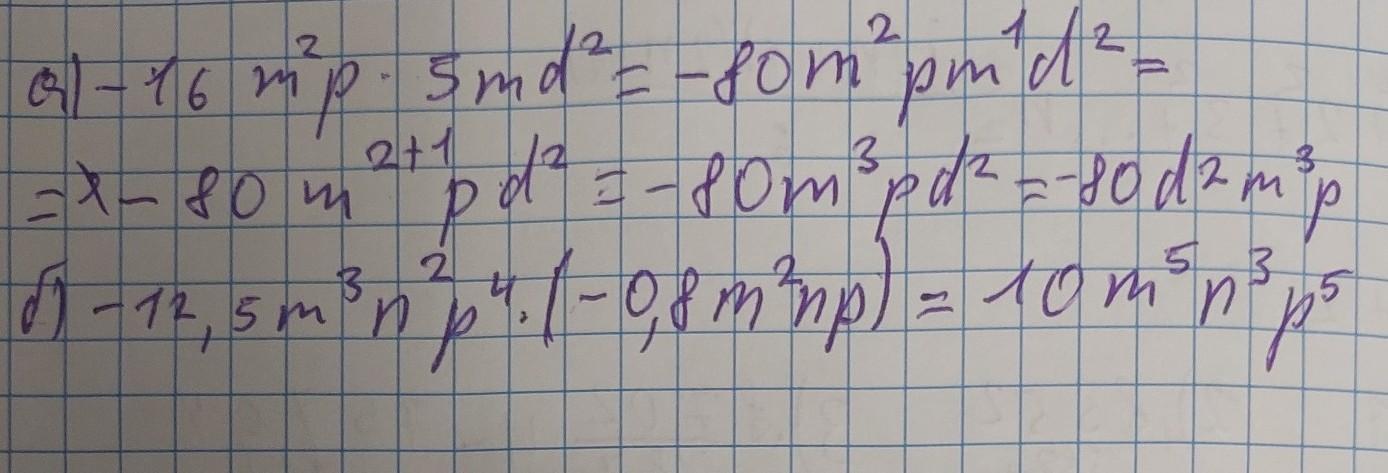 а) -16 m²p · 5md² = -80m²pm¹d² =
= -80 m²⁺¹pd² = -80m³pd² = -80d2m³p
б) -12,5m³n²p⁴·(-0,8m²np) = 10m⁵n³p⁵